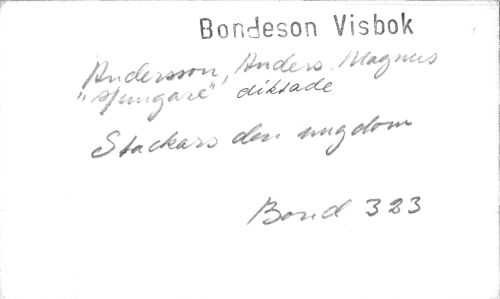 Bondeson Visbok
Andersson, Anders Magnus
"Sjungare" diktade
Stackars den ungdom
Bond 323